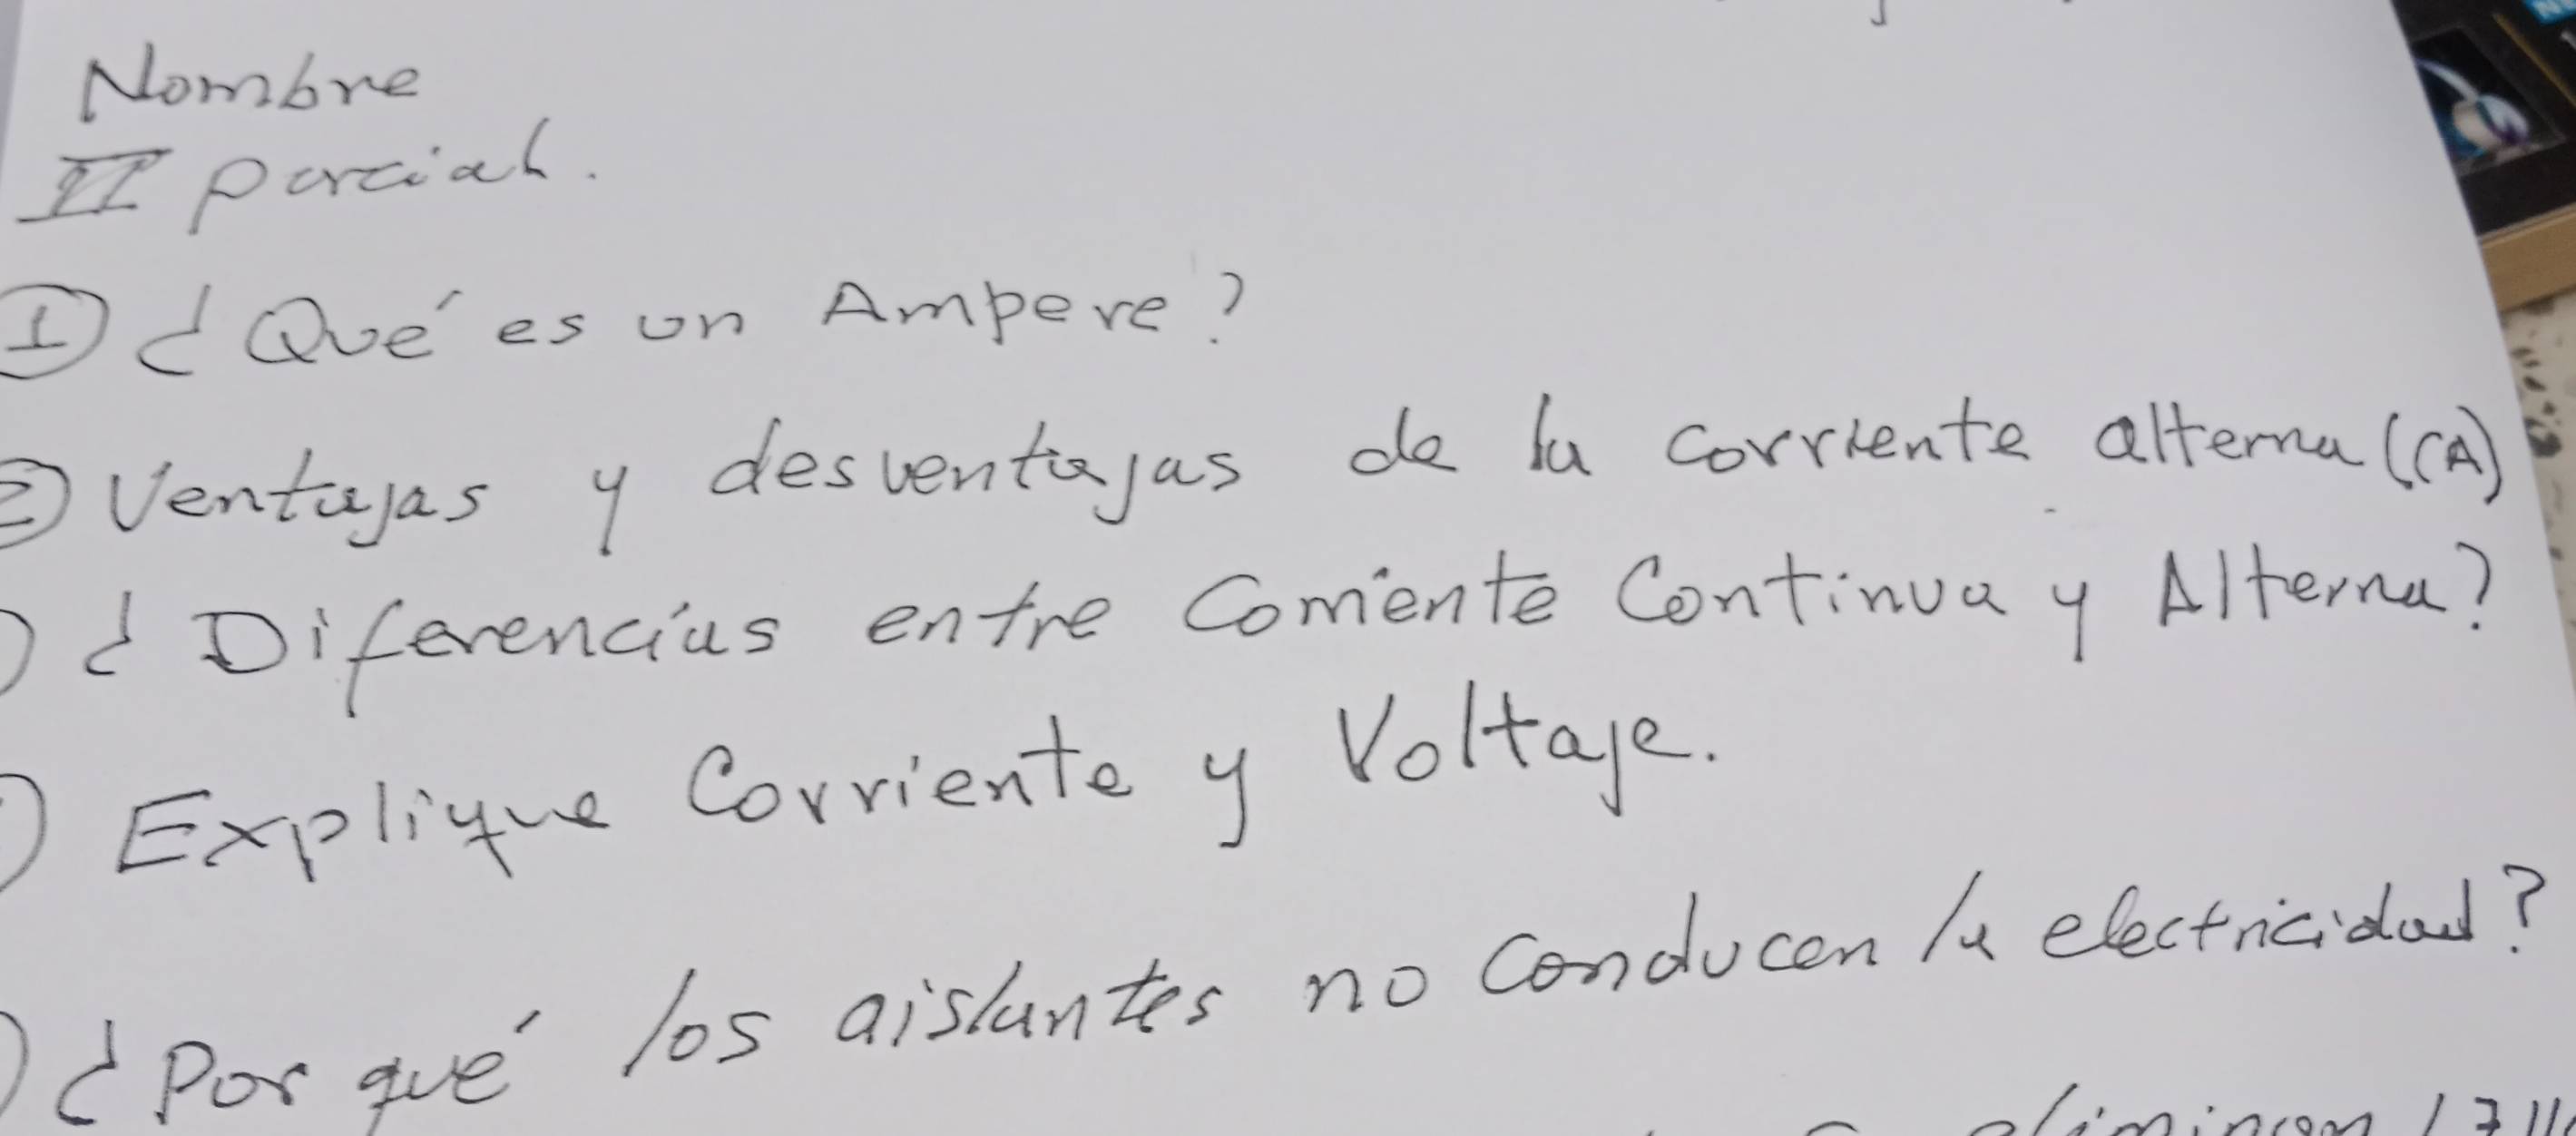 Nombre
II parcial.
① ¿Qué es un Ampere?
② Ventajas y desventajas de la corriente alterna (CA)
¿Diferencias entre Corriente Continua y Alterna?
Explique Corriente y Voltaje.
¿Por qué los aislantes no conducen la electricidad?